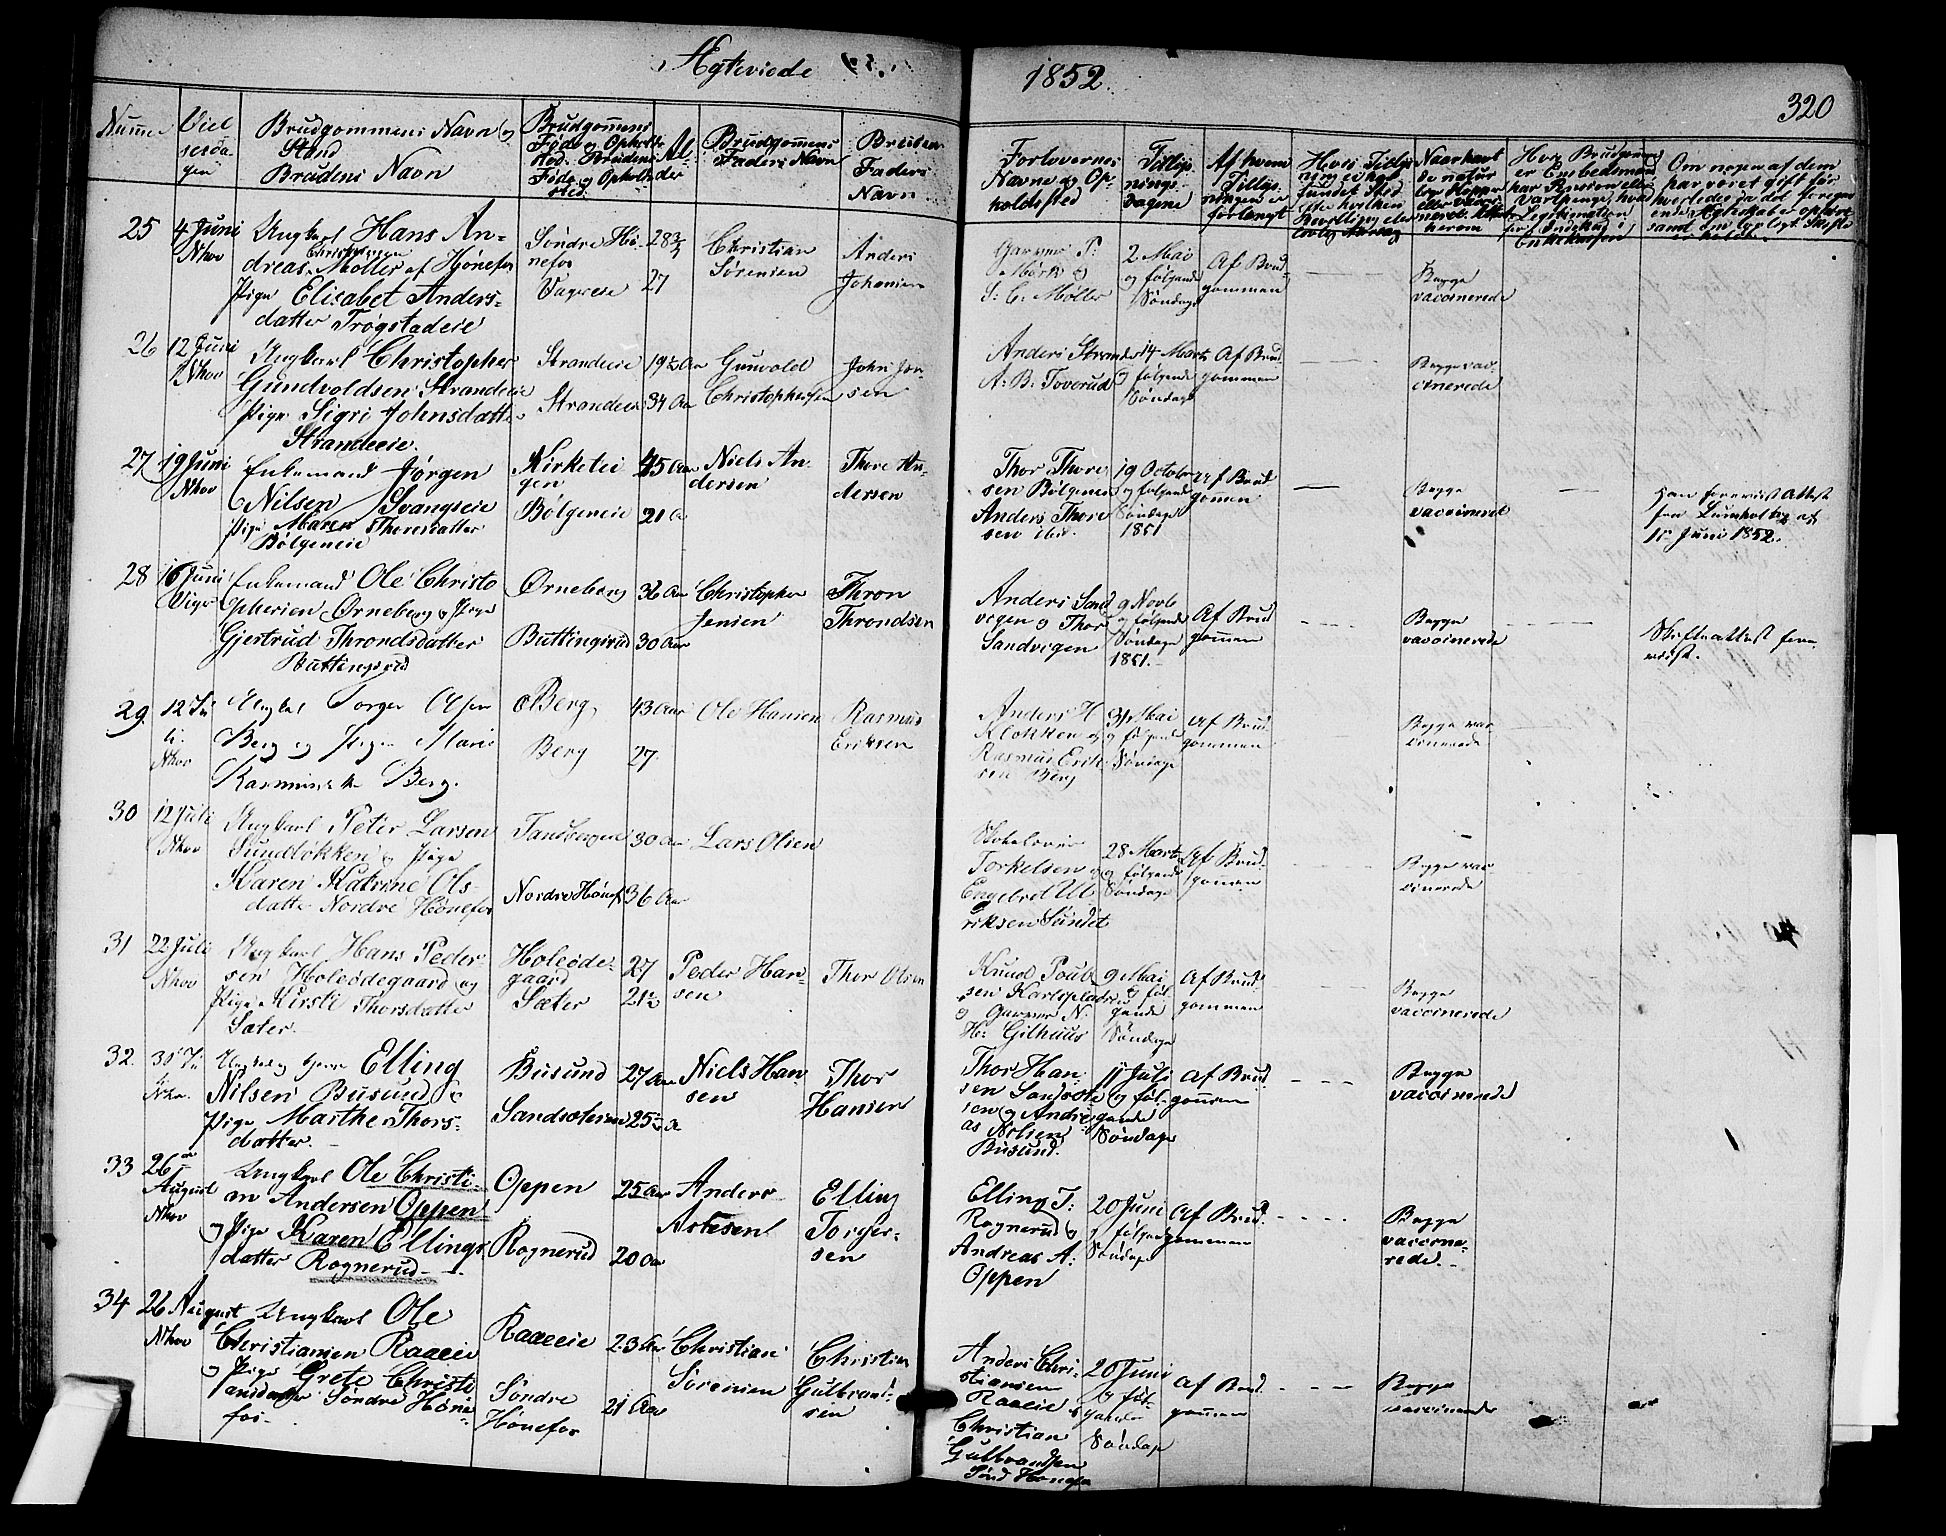 Ægteviede
1852.
320
Numer
Viel
sesda-
gen
Brudgommens Navn og
Stand
Brudens Navn
Brudgommens
Føde og Opholds
sted. Brudens
Føde og Ophold
sted.
Al-
der
Brudgommens
Faders Navn
Brudens
Faders
Navn
Forlovernes
Navne og Op-
holdsted
Tillys
nings-
dagene
Af hvem
Tillys-
ningen er
forlangt
25
4 Juni
Nhov
Ungkarl Hans An-
dreas Christiansen Møller af Hønefos
Pige Elisabet Anders-
datter Trøgstadeie
Søndre Hø-
nefos
28 3/4
27
Christian
Sørensen
Anders
Johansen
Garver P:
Mørk og
S: C: Møller
2 Mai
og følgende
Søndage
Af Brud-
gommen
Begge
vaccinerede
26
12 Juni
Nhov
Ungkarl Christopher
Gundvoldsen Strandeie
Pige Sigri Johnsdatter
Strandeeie.
Strandeie
Strandeie
19 1/2 Aar
34 Aar
Gunvold
Christophersen
John Jon-
sen
Anders Strande
A: B: Toverud
14 Marts
og følgende
Søndage
Af Brud-
gommen
Begge vac-
cinerede
27
19 Juni
Nhov
Enkemand Jørgen
Nilsen Svangseie
Pige Maren Thoresdatter
Bølgeneie
Kirketei
gen
Bølgeneie
45 Aar
21 A
Niels An-
dersen
Thore An-
dersen
Thor Thore
sen Bølgenei
Anders Thore
sen ibid.
19 October
og følgende
Søndage
1851
af Brud
gommen
Begge
vaccinerede
Han foreviist Attest
fra Lumholtz af
15 Juni 1852.
28
16 Juni
Viger
Enkemand Ole Christo
phersen Ørneberg og Pige
Gjertrud Throndsdatter
Buttingsrud
Ørneberg
Buttingsrud
36 Aar
30 Aar
Christopher
Jensen
Thron
Throndsen
Anders Sand
vegen og Thor
Sandvigen
9 Novb
og følgende
Søndage
1851.
Af Brud
gommen
Begge
vaccinerede
Skifteattest fore
viist.
29.
12 Ju
li.
Nhov
Ungkal Torger Olsen
Berg og Pigen Marie
Rasmusdtr Berg.
Berg
Berg
43 Aar
27.
Ole Hansen
Rasmus
Eriksen
Anders H
Klokken og
Rasmus Erik
sen Berg
31 Mai
og følgende
Søndage
Af Brud
gommen
Begge vac
cinerede
30
12 Juli
Nhov
Ungkarl Peter Larsen
Sundløkken og Pige
Karen Katrine Ols-
datter Nordre Hønefos
Tandbergeie
Nordre Hønefos
30 Aar
36 Aar
Lars Olsen
Torkelsen og
Engebret Ul
riksen Sundet
28 Marts
og følgende
Søndage
Af Brud-
gommen
Begge vac
cinerede
31
22 Juli
Nhov
Ungkarl Hans Peder-
sen Holeødegaard og
Pige Kirsti Thorsdatter
Sæter.
Holeøde-
gaard
Sæter
27
21 1/2
Peder Han-
sen
Thor Olsen
Knud Poul
sen Karlsplads
og Garver N.
H: Gilhuus
9 Mai
og føl-
gende
Søndage
Af Brud-
gommen
Begge
vaccinerede
32.
30 Ju
li
Ungkarl Elling
Nilsen Busund og
Pige Marthe Thors-
datter.
Busund
Sandsæteren
27 Aar
25 1/2 A
Niels Han-
sen
Thor
Hansen
Thor Han-
sen Sandsæte
ren og Andre-
as Nilsen
Busund.
11 Juli
og føl-
gende
Søndage
Af Brud
gommen
Begge
vaccinerede
33
26de
August
Nhov
Ungkarl Ole Christi-
an Andersen Oppen
og Pige Karen Ellings-
datter Rognerud.
Oppen
Rognerud
25 Aar
20 Aar
Anders
Astesen
Elling
Torger-
sen
Elling T:
Rognerud og
Andreas A:
Oppen
20 Juni
og følgende
Søndage
Af Brud-
gommen
Begge
vaccine-
rede.
34
26 August
Nhov
Ungkarl Ole
Christiansen Raaeeie
og Pige Grete Christi
ansdatter Søndre Høne
fos
Raaeeie
Søndre
Hønefos
23 Aar
21 Aar
Christian
Sørensen
Christian
Gulbrand-
sen
Anders Chri-
stiansen
Raaeeie og
Christian
Gulbrandsen
Sønd Hønefos
20 Juni
og føl-
gende
Søndage
Af Brud.
gommen
Begge
vaccinerede